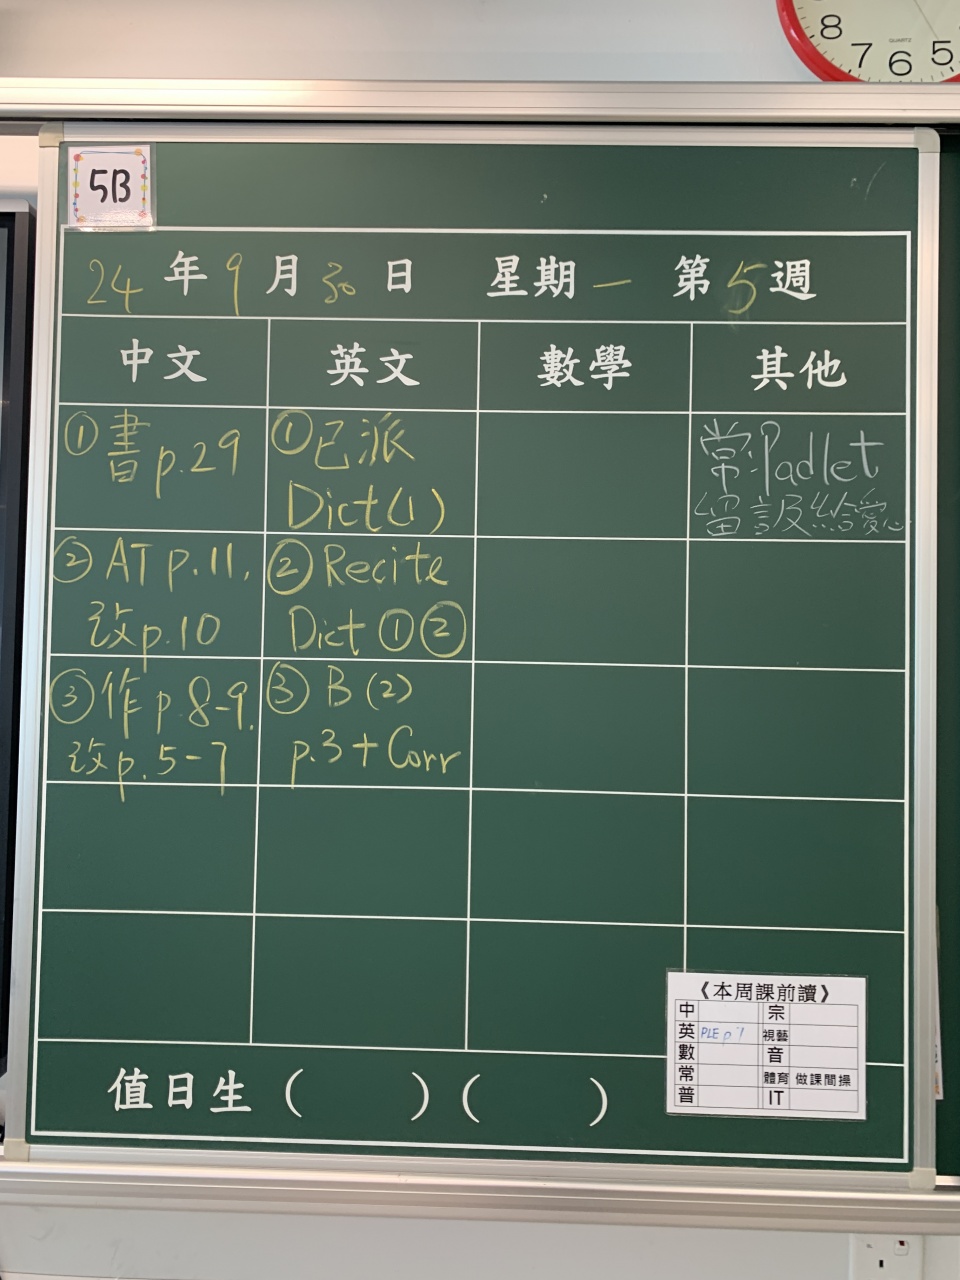 8
7
6
5
QUARTZ
5B
24年9月30日 星期一 第5週
中文 英文 數學 其他
①書p.29
①已派
Dict(1)
常:Padlet
留言及給愛心
②AT p.11,
改p.10
②Recite
Dict ①②
③作p.8-9,
改p.5-7
③ B(2)
p.3+Corr
《本周課前讀》
中 宗
英 PLE p 視藝
數 音
常 體育 做課間操
普 IT
值日生( )( )